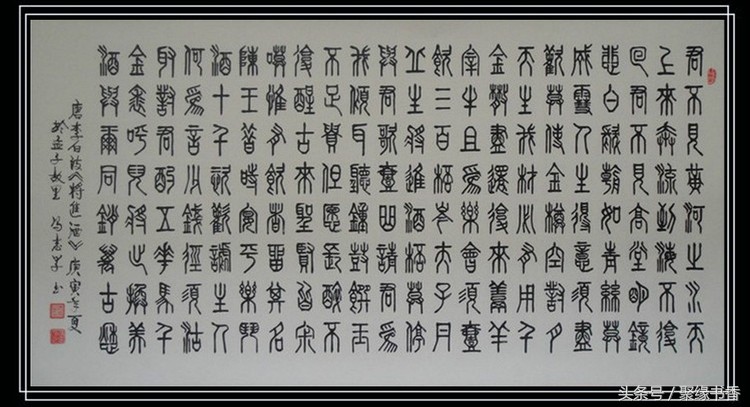 君不見黃河之水天
上來奔流到海不復
回君不見高堂明鏡
悲白髮朝如青絲暮
成雪人生得意須盡
歡莫使金樽空對月
天生我材必有用千
金散盡還復來烹羊
宰牛且為樂會須壹
飲三百杯岑夫子丹
丘生將進酒杯莫停
與君歌壹曲請君為
我傾耳聽鐘鼓饌玉
不足貴但願長醉不
復醒古來聖賢皆寂
寞惟有飲者留其名
陳王昔時宴平樂鬥
酒十千恣歡謔主人
何為言少錢徑須沽
取對君酌五花馬千
金裘呼兒將出換美
酒與爾同銷萬古愁
唐李白詩《將進酒》庚寅年夏
於孟子故里 書
头条号 / 聚缘书香